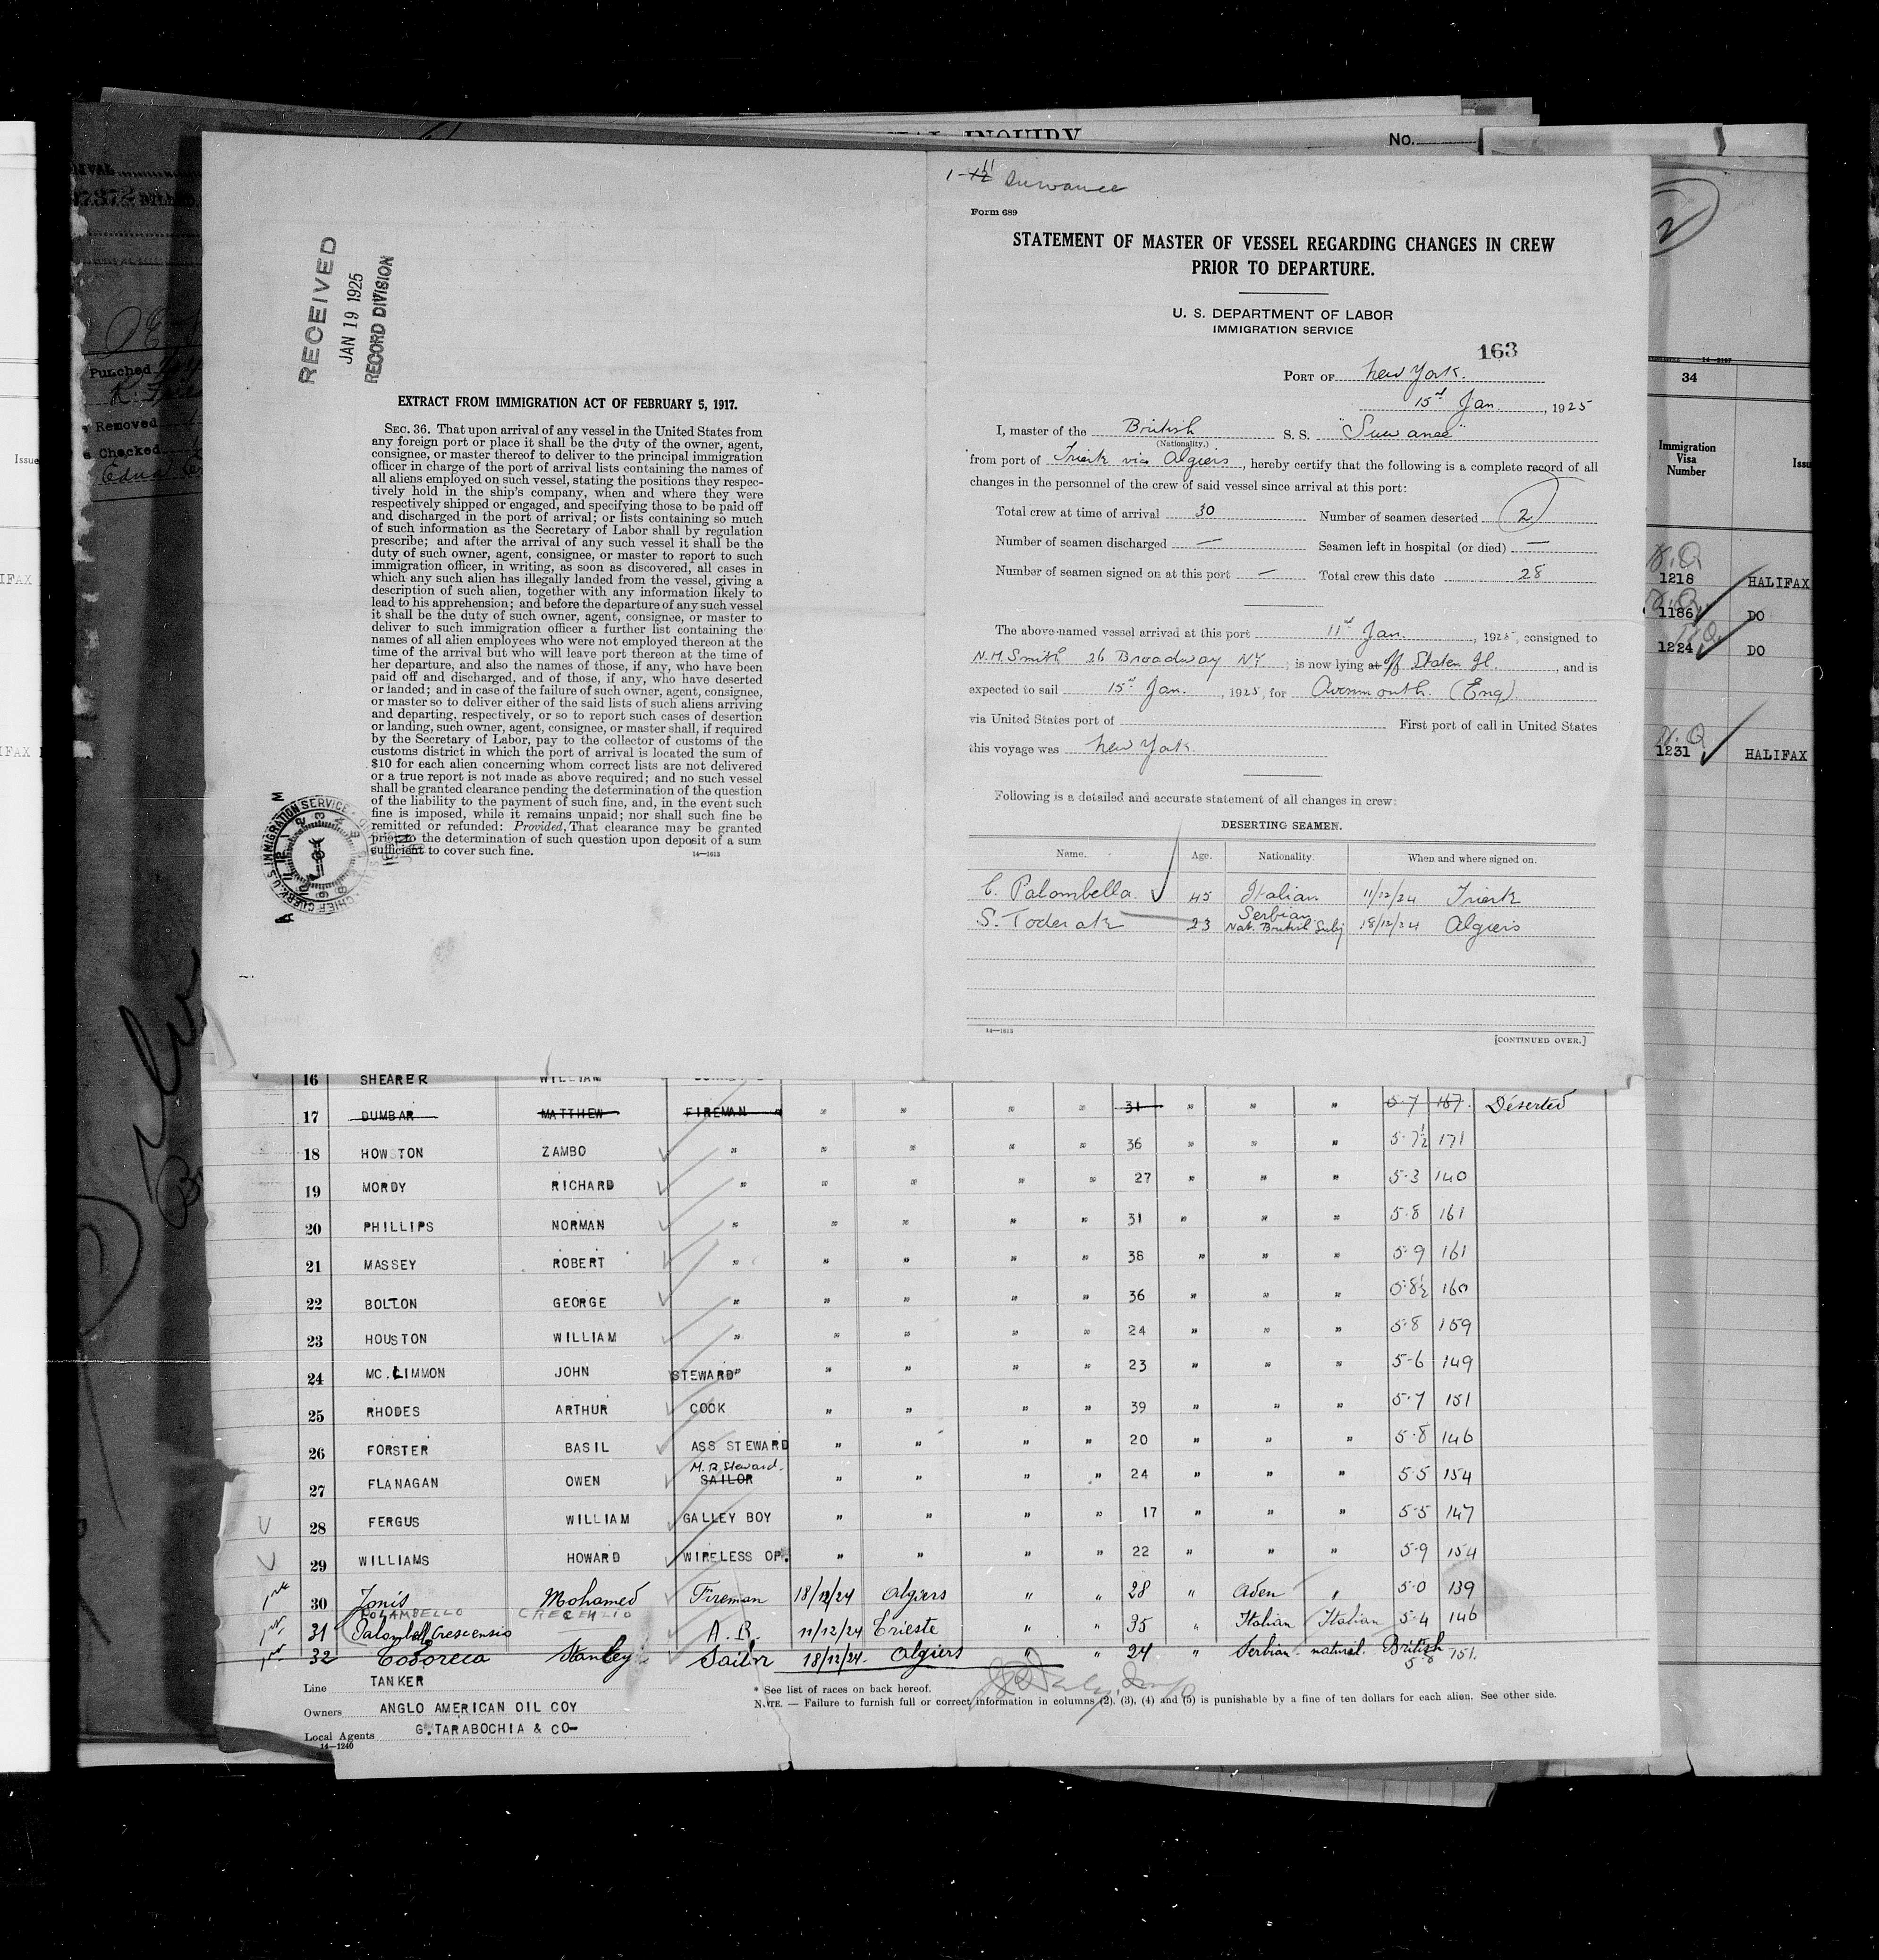 INQUIRY
No.
RECEIVED
JAN 19 1925
RECORD DIVISION
EXTRACT FROM IMMIGRATION ACT OF FEBRUARY 5, 1917.
SEC. 36. That upon arrival of any vessel in the United States from
any foreign port or place it shall be the duty of the owner, agent,
consignee, or master thereof to deliver to the principal immigration
officer in charge of the port of arrival lists containing the names of
all aliens employed on such vessel, stating the positions they respec-
tively hold in the ship's company, when and where they were
respectively shipped or engaged, and specifying those to be paid off
and discharged in the port of arrival; or lists containing so much
of such information as the Secretary of Labor shall by regulation
prescribe; and after the arrival of any such vessel it shall be the
duty of such owner, agent, consignee, or master to report to such
immigration officer, in writing, as soon as discovered, all cases in
which any such alien has illegally landed from the vessel, giving a
description of such alien, together with any information likely to
lead to his apprehension; and before the departure of any such vessel
it shall be the duty of such owner, agent, consignee, or master to
deliver to such immigration officer a further list containing the
names of all alien employees who were not employed thereon at the
time of the arrival but who will leave port thereon at the time of
her departure, and also the names of those, if any, who have been
paid off and discharged, and of those, if any, who have deserted
or landed; and in case of the failure of such owner, agent, consignee,
or master so to deliver either of the said lists of such aliens arriving
and departing, respectively, or so to report such cases of desertion
or landing, such owner, agent, consignee, or master shall, if required
by the Secretary of Labor, pay to the collector of customs of the
customs district in which the port of arrival is located the sum of
$10 for each alien concerning whom correct lists are not delivered
or a true report is not made as above required; and no such vessel
shall be granted clearance pending the determination of the question
of the liability to the payment of such fine, and, in the event such
fine is imposed, while it remains unpaid; nor shall such fine be
remitted or refunded: Provided, That clearance may be granted
prior to the determination of such question upon deposit of a sum
sufficient to cover such fine.
14—1613
U.S. IMMIGRATION SERVICE
CHIEF CLERK
1-12 11 Suwanee
Form 689
STATEMENT OF MASTER OF VESSEL REGARDING CHANGES IN CREW
PRIOR TO DEPARTURE.
U. S. DEPARTMENT OF LABOR
IMMIGRATION SERVICE
163
PORT OF New York.
15th Jan., 1925
I, master of the British S. S. "Suwanee"
(Nationality.)
from port of Trieste via Algiers, hereby certify that the following is a complete record of all
changes in the personnel of the crew of said vessel since arrival at this port:
Total crew at time of arrival 30 Number of seamen deserted 2
Number of seamen discharged — Seamen left in hospital (or died) —
Number of seamen signed on at this port — Total crew this date 28
The above-named vessel arrived at this port 11th Jan., 1925, consigned to
N.H. Smith 26 Broadway NY; is now lying at off Staten Il., and is
expected to sail 15th Jan., 1925, for Avonmouth. (Eng)
via United States port of First port of call in United States
this voyage was New York.
Following is a detailed and accurate statement of all changes in crew:
DESERTING SEAMEN.
Name. Age. Nationality. When and where signed on.
C. Palombella. 45 Italian. 11/12/24 Trieste
S. Toderak 23 Serbian Nat. British Subj 18/12/24 Algiers
14—1613
[CONTINUED OVER.]
16 SHEARER WILLIAM
17 DUMBAR MATTHEW FIREMAN " " " " 31 " " " 5-7 157. Deserted
18 HOWSTON ZAMBO " " " " " 36 " " " 5-7½ 171
19 MORDY RICHARD " " " " " 27 " " " 5-3 140
20 PHILLIPS NORMAN " " " " " 31 " " " 5-8 161
21 MASSEY ROBERT " " " " " 38 " " " 5-9 161
22 BOLTON GEORGE " " " " " 36 " " " 5-8½ 160
23 HOUSTON WILLIAM " " " " " 24 " " " 5-8 159
24 MC.LIMMON JOHN STEWARD" " " " " 23 " " " 5-6 149
25 RHODES ARTHUR COOK " " " " 39 " " " 5-7 151
26 FORSTER BASIL ASS STEWARD " " " " 20 " " " 5-8 146
M.R. Steward.
27 FLANAGAN OWEN SAILOR " " " " 24 " " " 5-5 154
28 FERGUS WILLIAM GALLEY BOY " " " " 17 " " " 5-5 147
29 WILLIAMS HOWARD WIRELESS OP. " " " " 22 " " " 5-9 154
30 Jonis Mohamed Fireman 18/12/24 Algiers " " 28 " Aden " 5-0 139
COLAMBELLO CRECENZIO
31 Palombella Crescensio A.B. 11/12/24 Trieste " " 35 " Italian Italian 5-4 146
32 Todoreca Stanley Sailor 18/12/24. Algiers " " 24 " Serbian. natural. British 5-8 151.
Line TANKER
Owners ANGLO AMERICAN OIL COY
Local Agents G.TARABOCHIA & CO-
14—1240
* See list of races on back hereof.
NOTE. — Failure to furnish full or correct information in columns (2), (3), (4) and (5) is punishable by a fine of ten dollars for each alien. See other side.
Punched
Removed
Checked
Edna
2
34
Immigration
Visa
Number
1218 HALIFAX
1186 DO
1224 DO
1231 HALIFAX